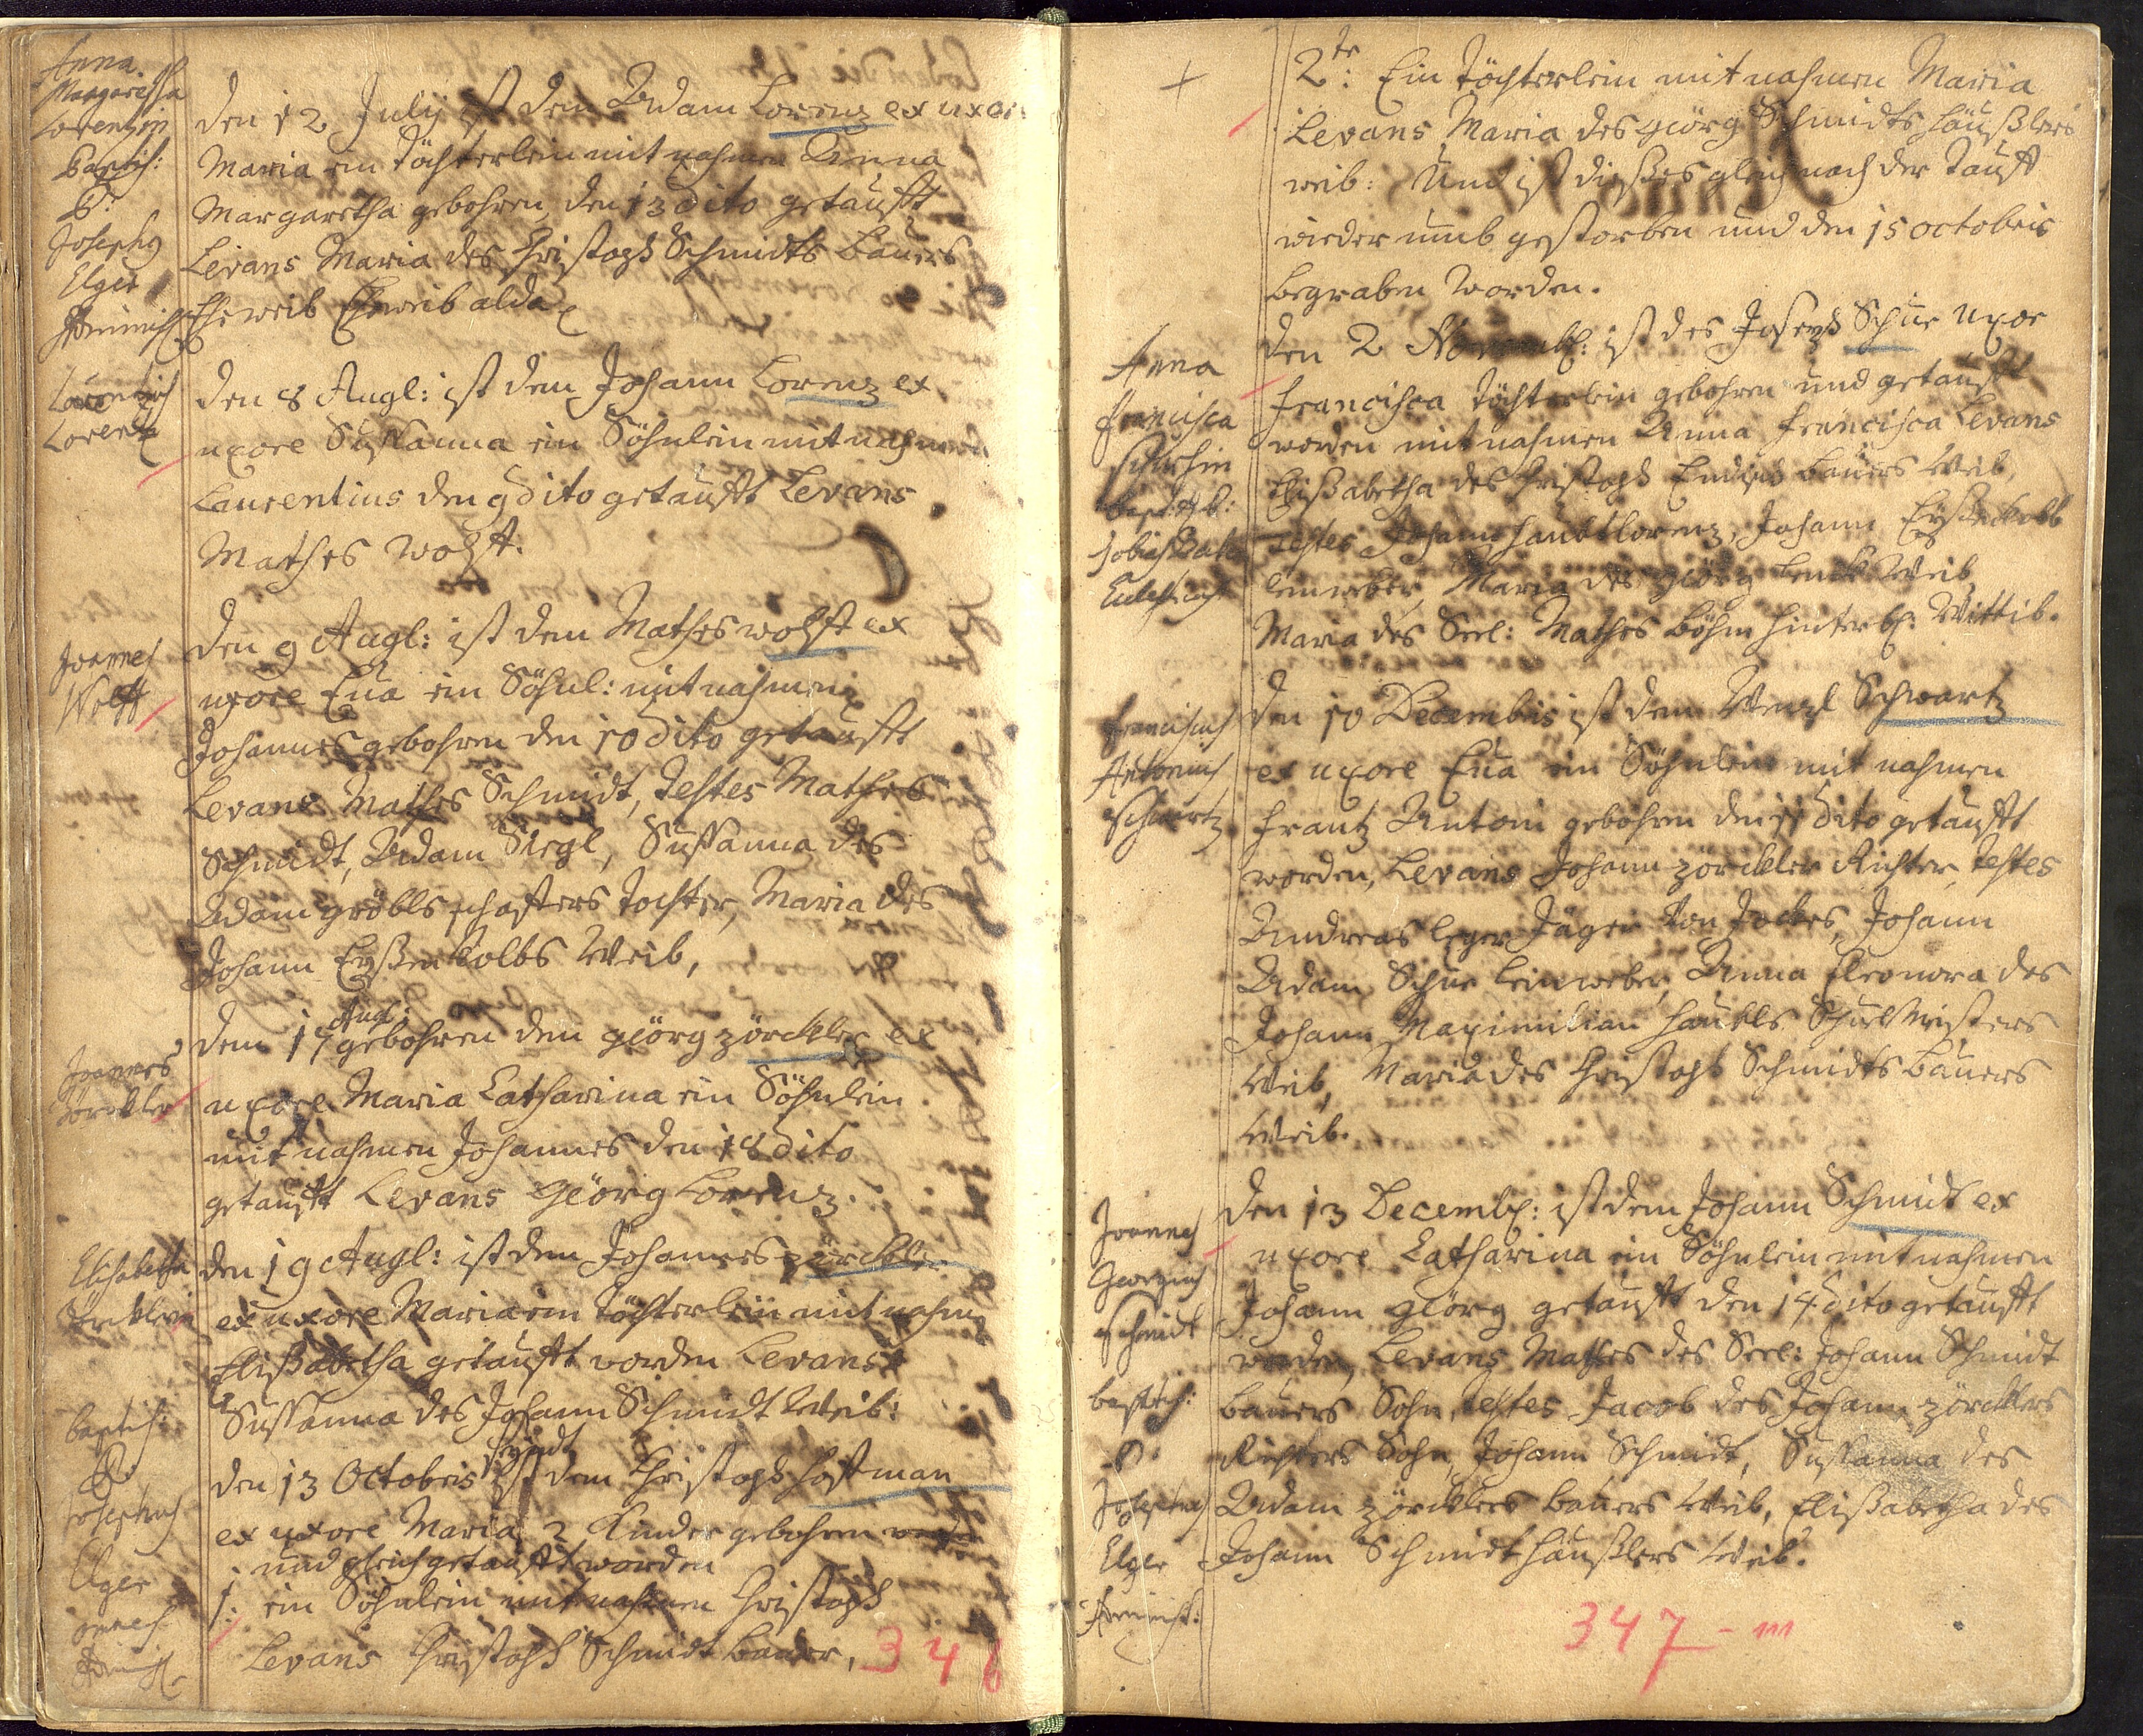 Anna
Margaretha
Lorentzin
Baptis:
P:
Josephus
Elger
Administ
den 12 July ist dem Adam Lorenz ex uxor
Maria ein Töchterlein mit nahmen Anna
Margaretha gebohren, den 13 dito getaufft
Levans Maria des Christoph Schmidts Bauers
Eheweib Eheweib alda
Laurentius
Lorentz
den 8 Augl: ist dem Johann Lorenz ex
uxore Susanna ein Söhnlein mit nahmen
Laurentius den 9 dito getaufft Levans
Mathes Wolfft.
Joannes
Wolff
den 9 Augl: ist dem Mathes Wolfft ex
uxore Eua ein Söhnl: mit nahmen
Johannes gebohren den 10 dito getaufft
Levans Mathes Schmidt, Testes Mathes
Schmidt, Adam Siegl, Susanna des
Adam gröbls schaffers Tochter, Maria des
Johann Eyßenkolbs Weib,
Joannes
Zörckler
Augl:
dem 17 gebohren dem Geörg Zörckler ex
uxore Maria Catharina ein Söhnlein
mit nahmen Johannes den 18 dito
getaufft Levans Geörg Lorenz.
Elisabetha
Zörcklerin
den 19 Augl: ist dem Johannes Zörckler
ex uxore Maria ein Töchterlein mit nahmen
Elisabetha getaufft worden Levans
Susanna des Johann Schmidt Weib:
baptis:
P:
Josephus
Elger
Administ
den 13 Octobris seyndt dem Christoph Hoffman
ex uxore Maria 2 Kinder gebohren
und gleich getaufft worden
1: ein Söhnlein mit nahmen Christoph
Levans Christoph Schmidt Bauer,
346
2te: Ein Töchterlein mit nahmen Maria
Levans Maria des Geörg Schmidts Häußlers
weib: Und ist dießes gleich nach der Tauff
wieder umb gestorben und den 15 octobris
begraben worden.
Anna
Francisca
Schuhin
Baptis:
den 2 Novemb: ist des Joseph Schue uxor
Francisca Töchterlein gebohren und getaufft
worden mit nahmen Anna Francisca Levans
Elisabetha des Christoph Bauers Weib,
Testes Johann Lorenz, Johann Eyßenkolb
leinweber, Maria des Geörg Weib,
Maria des Seel: Mathes Böhm hinterl: Wittib.
Franciscus
Antonius
Schwartz
den 10 Decembris ist dem Wenzl Schwartz
ex uxore Eua ein Söhnlein mit nahmen
Frantz Antoni gebohren den 11 dito getaufft
worden, Levans Johann Zörckler Richter, Testes
Andreas Jäger von Johann
Adam Schue leinweber, Anna Eleonora des
Johann Maximilian Schulmeisters
Weib, Maria des Christoph Schmidts Bauers
Weib.
Joannes
Georgius
Schmidt
baptis:
P:
Josephus
Elger
Administ:
den 13 Decemb: ist dem Johann Schmidt ex
uxore Catharina ein Söhnlein mit nahmen
Johann Geörg getaufft den 14 dito getaufft
worden, Levans Mathes des Seel: Johann Schmidt
Bauers Sohn, Testes Jacob des Johann Zörcklers
Richters Sohn, Johann Schmidt, Susanna des
Adam Zörcklers Bauers Weib, Elißabetha des
Johann Schmidt Häußlers Weib.
347 - m